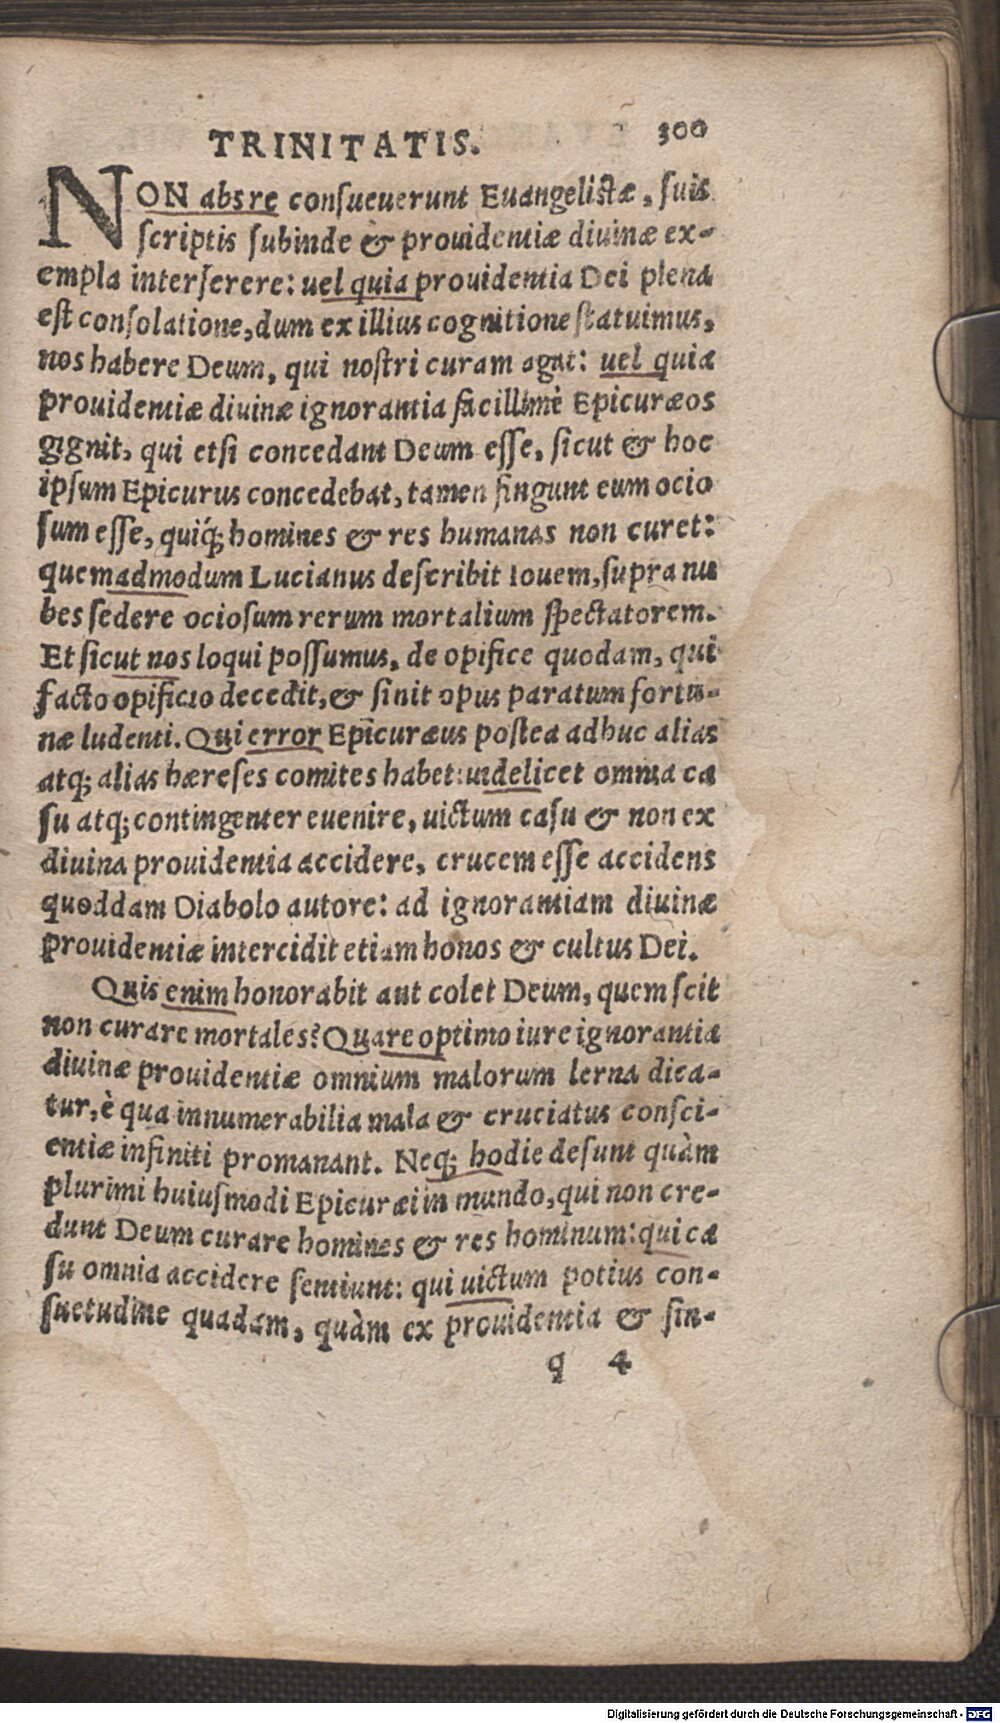 TRINITATIS. 300
NON abs re conſueuerunt Euangeliſtæ, ſuis
ſcriptis ſubinde & prouidentiæ diuinæ ex-
empla interſerere: uel quia prouidentia Dei plena
eſt conſolatione, dum ex illius cognitione ſtatuimus,
nos habere Deum, qui noſtri curam agat: uel quia
prouidentiæ diuinæ ignorantia facillimè Epicuræos
gignit, qui etſi concedant Deum eſſe, ſicut & hoc
ipſum Epicurus concedebat, tamen fingunt eum ocio
ſum eſſe, quiq́; homines & res humanas non curet:
quemadmodum Lucianus deſcribit Iouem, ſupra nu
bes ſedere ocioſum rerum mortalium ſpectatorem.
Et ſicut nos loqui poſſumus, de opifice quodam, qui
facto opificio decedit, & ſinit opus paratum fortu-
næ ludenti. Qui error Epicuræus poſtea adhuc alias
atq; alias hæreſes comites habet: uidelicet omnia ca
ſu atq; contingenter euenire, uictum caſu & non ex
diuina prouidentia accidere, crucem eſſe accidens
quoddam Diabolo autore: ad ignorantiam diuinæ
prouidentiæ intercidit etiam honos & cultus Dei.
Quis enim honorabit aut colet Deum, quem ſcit
non curare mortales? Quare optimo iure ignorantia
diuinæ prouidentiæ omnium malorum lerna dica-
tur, è qua innumerabilia mala & cruciatus conſci-
entiæ infiniti promanant. Neq; hodie deſunt quàm
plurimi huiuſmodi Epicuræi in mundo, qui non cre-
dunt Deum curare homines & res hominum: qui ca
ſu omnia accidere ſentiunt: qui uictum potius con-
ſuetudine quadam, quàm ex prouidentia & ſin-
q 4
Digitalisierung gefördert durch die Deutsche Forschungsgemeinschaft - DFG